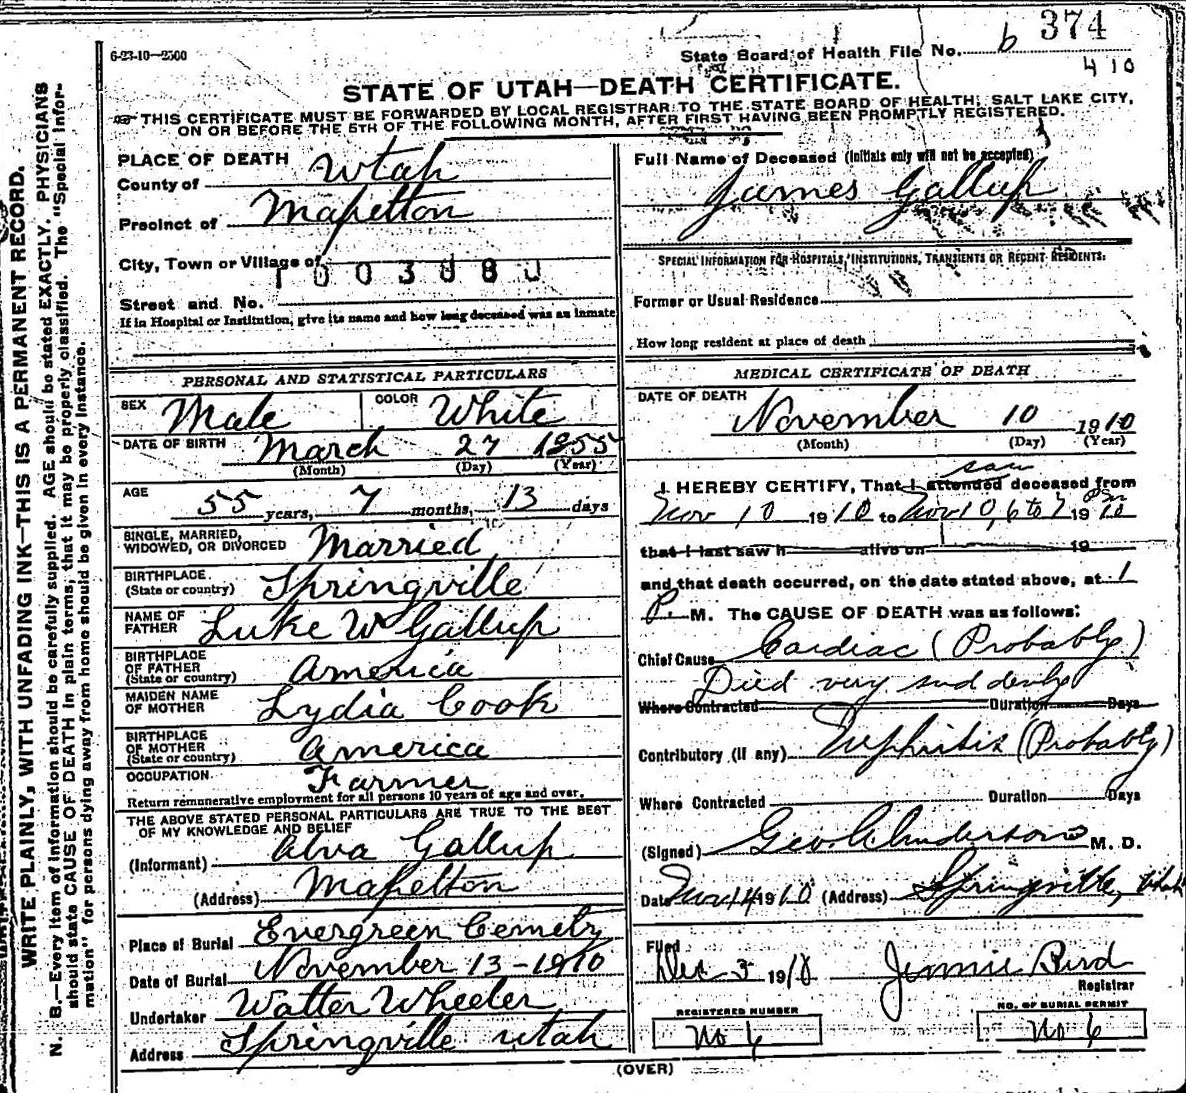 6-23-10—2500
State Board of Health File No. b 374
410
STATE OF UTAH—DEATH CERTIFICATE.
THIS CERTIFICATE MUST BE FORWARDED BY LOCAL REGISTRAR TO THE STATE BOARD OF HEALTH, SALT LAKE CITY,
ON OR BEFORE THE 5TH OF THE FOLLOWING MONTH, AFTER FIRST HAVING BEEN PROMPTLY REGISTERED.
WRITE PLAINLY, WITH UNFADING INK—THIS IS A PERMANENT RECORD.
N. B.—Every item of information should be carefully supplied. AGE should be stated EXACTLY. PHYSICIANS
should state CAUSE OF DEATH in plain terms, that it may be properly classified. The "Special Infor-
mation" for persons dying away from home should be given in every instance.
PLACE OF DEATH
County of Utah
Precinct of Mapelton
City, Town or Village of
Street and No.
If in Hospital or Institution, give its name and how long deceased was an inmate
PERSONAL AND STATISTICAL PARTICULARS
SEX Male COLOR White
DATE OF BIRTH March 27 1855
(Month) (Day) (Year)
AGE 55 years, 7 months, 13 days
SINGLE, MARRIED,
WIDOWED, OR DIVORCED Married
BIRTHPLACE
(State or country) Springville
NAME OF
FATHER Luke W Gallup
BIRTHPLACE
OF FATHER
(State or country) America
MAIDEN NAME
OF MOTHER Lydia Cook
BIRTHPLACE
OF MOTHER
(State or country) America
OCCUPATION Farmer
Return remunerative employment for all persons 10 years of age and over.
THE ABOVE STATED PERSONAL PARTICULARS ARE TRUE TO THE BEST
OF MY KNOWLEDGE AND BELIEF
(Informant) Alva Gallup
(Address) Mapelton
Place of Burial Evergreen Cemetry
Date of Burial November 13-1910
Undertaker Walter Wheeler
Address Springville Utah
Full Name of Deceased (Initials only will not be accepted)
James Gallup
SPECIAL INFORMATION FOR HOSPITALS, INSTITUTIONS, TRANSIENTS OR RECENT RESIDENTS:
Former or Usual Residence
How long resident at place of death
MEDICAL CERTIFICATE OF DEATH
DATE OF DEATH
November 10 1910
(Month) (Day) (Year)
saw
I HEREBY CERTIFY, That I attended deceased from
Nov 10 1910 to Nov 10, 6 to 7 pm 1910
that I last saw h alive on 19
and that death occurred, on the date stated above, at 1
P. M. The CAUSE OF DEATH was as follows:
Chief Cause Cardiac (Probably)
Died very suddenly
Where Contracted Duration Days
Contributory (if any) Nephritis (Probably)
Where Contracted Duration Days
(Signed) Geo. Anderson M. D.
Date Nov 14 1910 (Address) Springville, Utah
Filed
Dec 3 1910 Jennie Bird
Registrar
REGISTERED NUMBER NO. OF BURIAL PERMIT
No 6 No 6
(OVER)